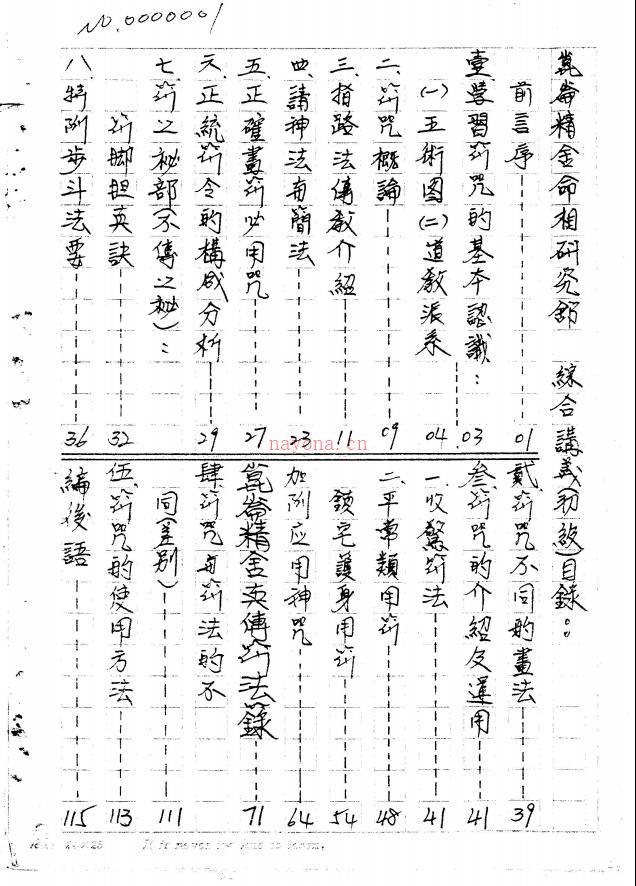 NO.0000001
崑崙精舍命相研究館 綜合講義(初級)目錄:。
前言序 01
壹、學習符咒的基本認識: 03
(一)五術图(二)道教派系 04
二、符咒概論 09
三、指路法傳教介紹 11
四、請神法与簡法 23
五、正確畫符必用咒 27
六、正統符令的構成分析 29
七、符之秘部(不傳之秘):
符脚胆英訣 32
八、特附步斗法要 36
貳、符咒不同的畫法 39
叁、符咒的介紹及運用 41
一、收驚符法 41
二、平常類用符 48
鎮宅護身用符 54
加附应用神咒 64
崑崙精舍真傳符法籙 71
肆、符咒与符法的不
同(差別) 111
伍、符咒的使用方法 113
編後語 115
nayona.cn
It is never too late to learn.